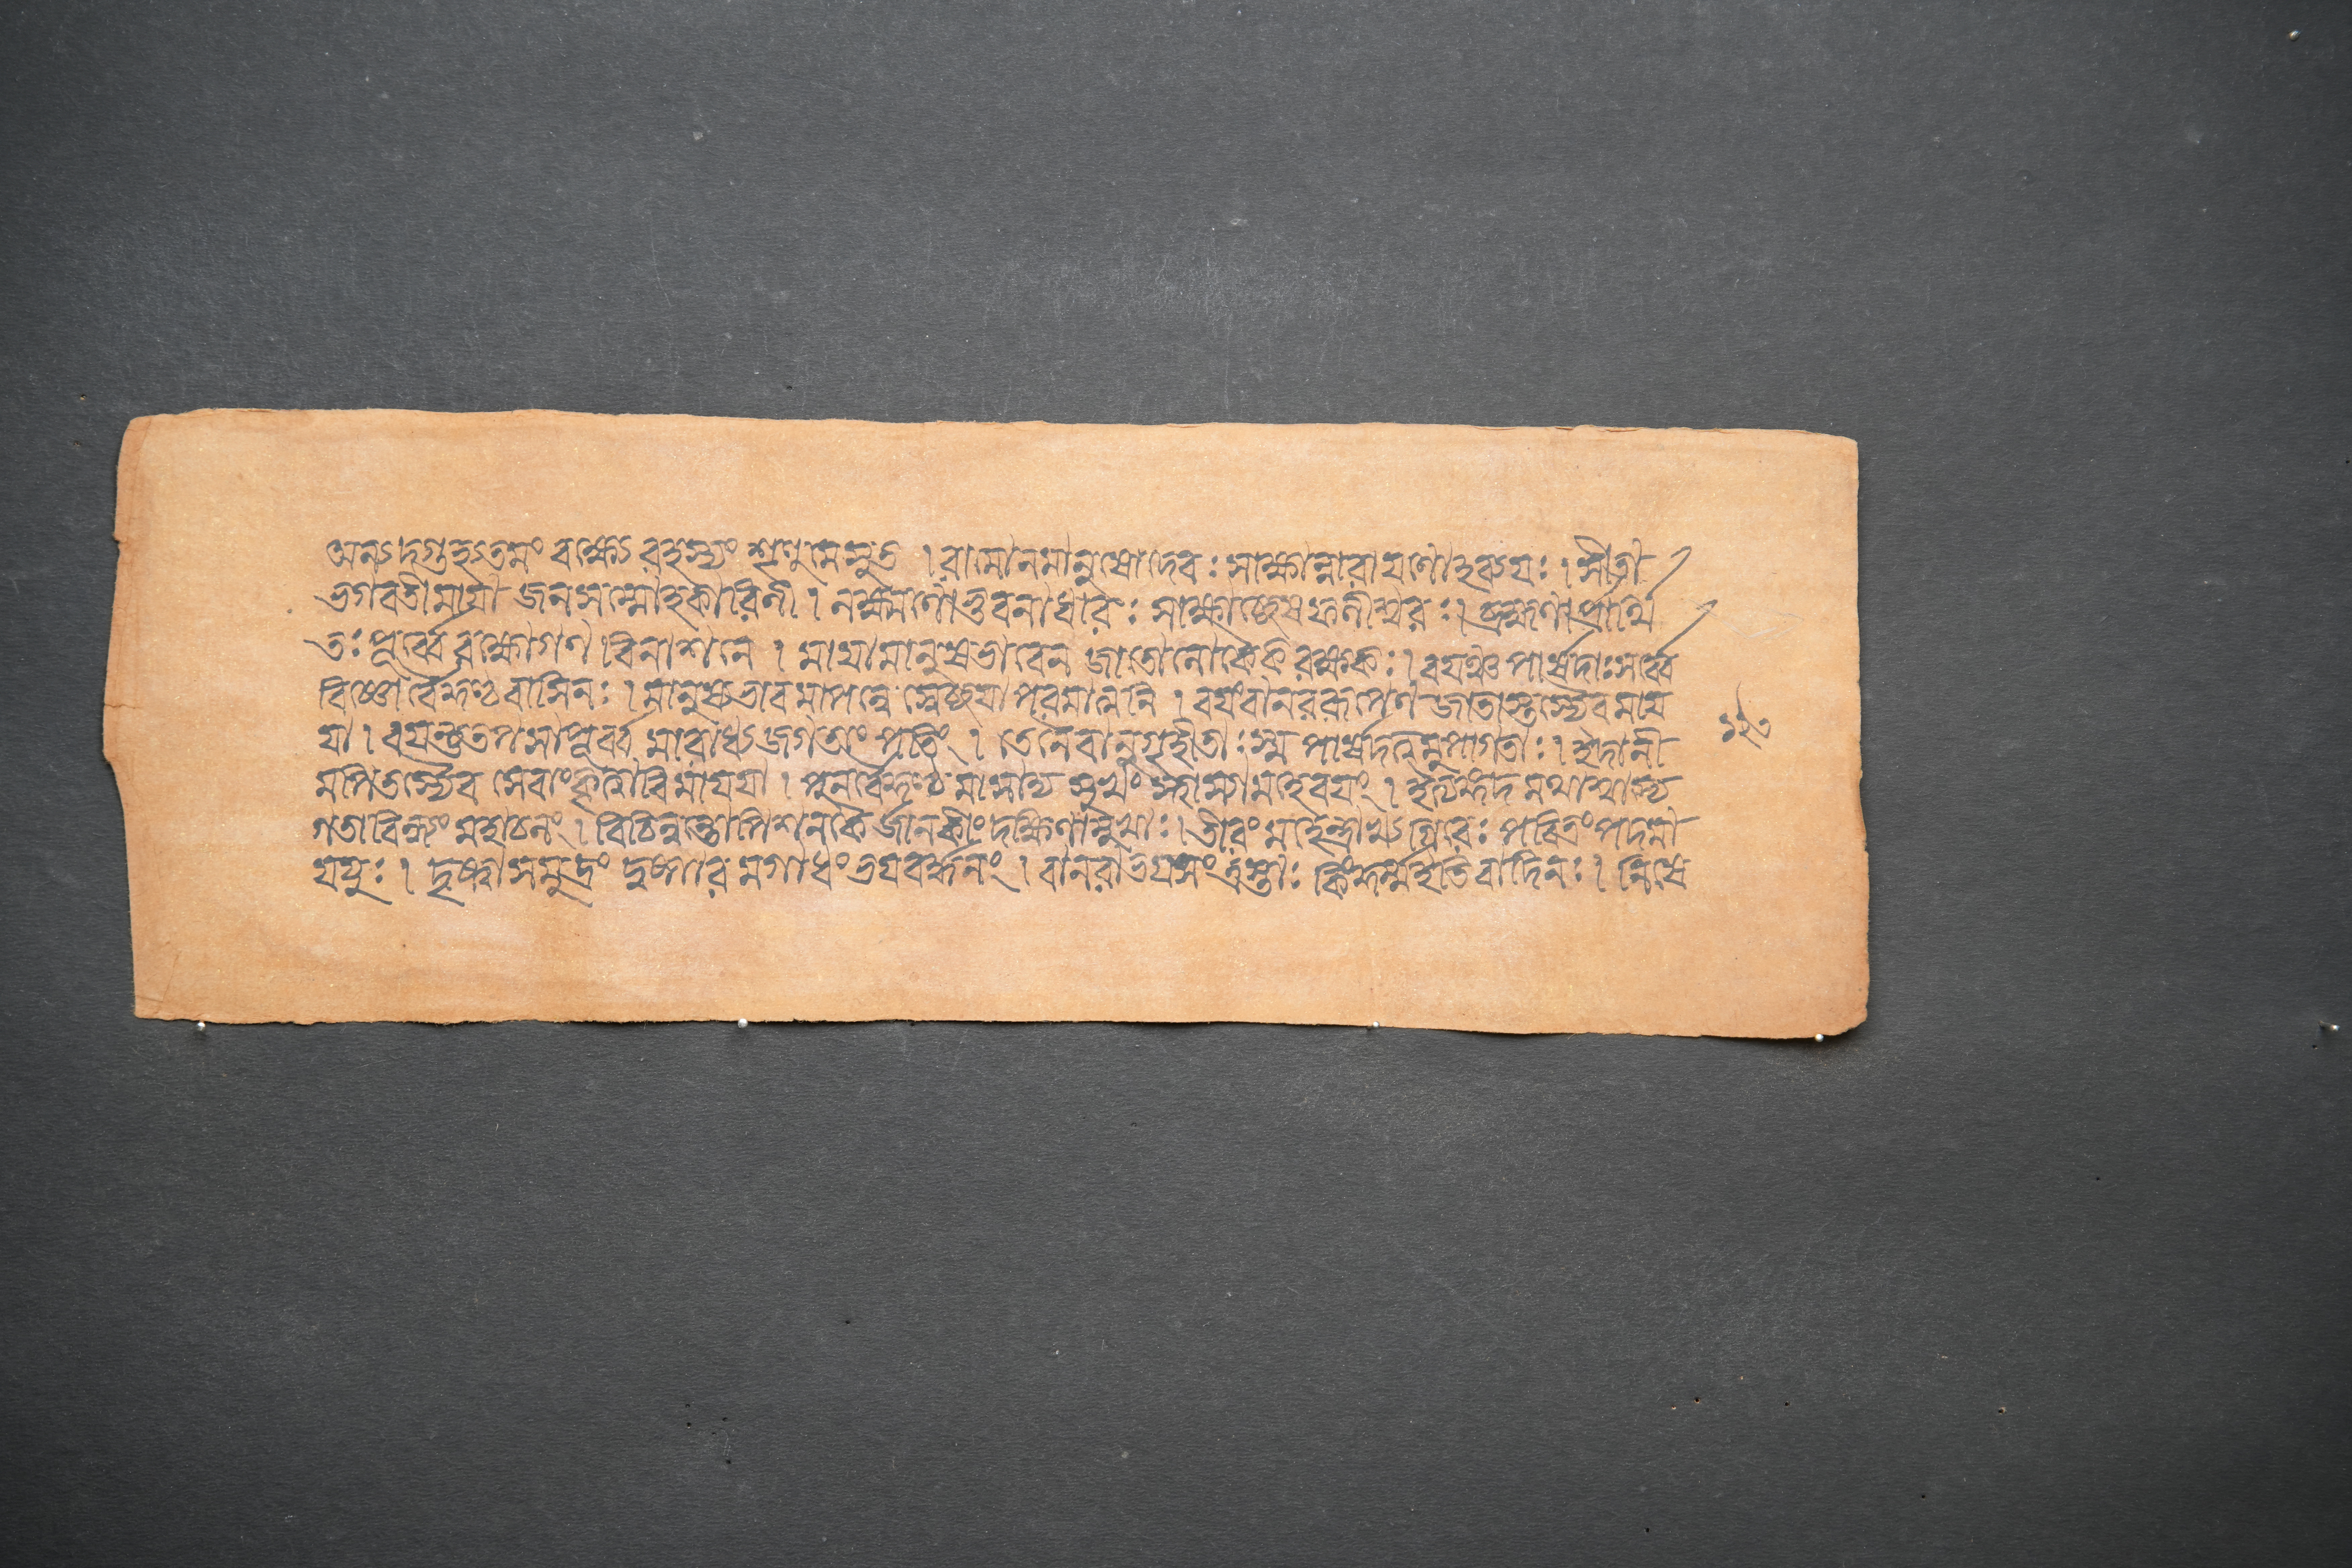 অন্যদ্গুহ্যতমং বক্ষ্যে রহস্যং শৃণু মে সুত । রামো ন মানুষো দেবঃ সাক্ষান্নারায়ণোহব্যয়ঃ । সীতা
ভগবতী মায়া জনসম্মোহকারিনী । লক্ষ্মণো ভুবনাধারঃ সাক্ষাচ্ছেষফণীশ্বরঃ । ব্রহ্মণা প্রার্থি
তঃ পূর্ব্বে রক্ষোগণ বিনাশনে । মায়ামানুষভাবেন জাতো লোকৈকরক্ষকঃ । বয়ঞ্চ পার্ষদাঃ সর্ব্বে
বিষ্ণোর্বৈকুণ্ঠবাসিনঃ । মানুষভাবমাপন্নে স্বেচ্ছয়া পরমাত্মনি । বয়ং বানররূপেণ জাতাস্তস্যৈব মায়
য়া । বয়ন্তু তপসা পূর্ব্ব মারাধ্য জগতাং পতিং । তেনৈবানুগৃহীতাঃ স্ম পার্ষদত্বমুপাগতাঃ । ইদানী
মপি তস্যৈব সেবাং কৃত্বৈব মায়য়া । পুনর্বৈকুণ্ঠমাসাদ্য সুখং স্থাস্যামহে বয়ং । ইত্যঙ্গদমথাশ্বাস্য
গতা বিন্ধ্যং মহাচলং । বিচিন্বন্তোপি শনকৈর্জানকীং দক্ষিণাম্বুধেঃ । তীরং মহেন্দ্রাখ্যগিরেঃ পবিত্রং পদমা
যযুঃ । দৃষ্ট্বা সমুদ্রং দুষ্পারমগাধং ভয়বর্দ্ধনং । বানরা ভয়সংত্রস্তাঃ কিং কুর্ম্ম ইতি বাদিনঃ । নিষে